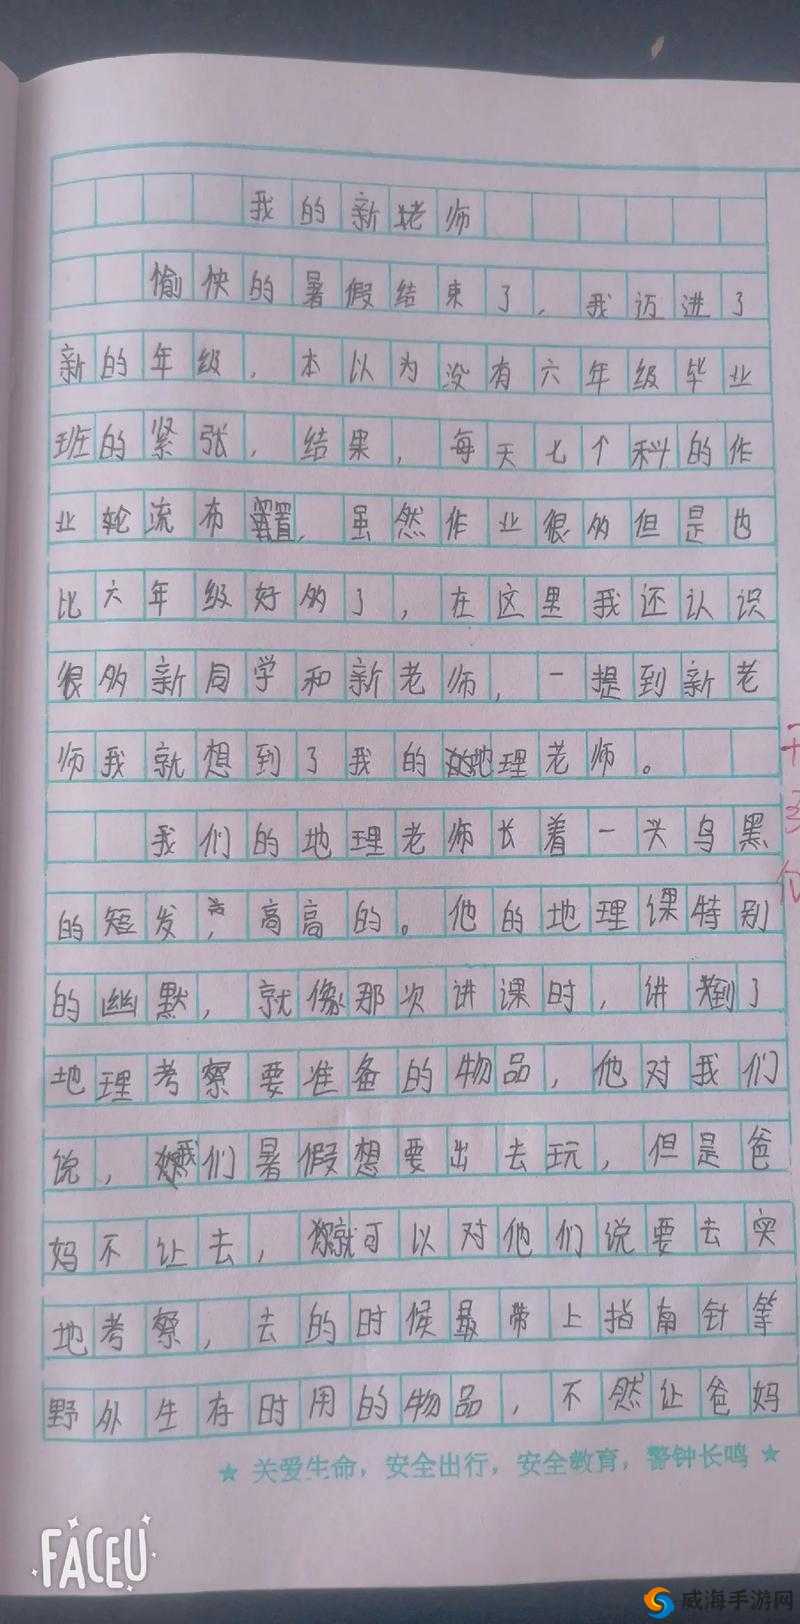 我的新老师
愉快的暑假结束了，我迈进了
新的年级，本以为没有六年级毕业
班的紧张，结果，每天七个科的作
业轮流布置，虽然作业很多但是也
比六年级好多了，在这里我还认识
很多新同学和新老师，一提到新老
师我就想到了我的地理老师。
我们的地理老师长着一头乌黑
的短发，高高的。他的地理课特别
的幽默，就像那次讲课时，讲到了
地理考察要准备的物品，他对我们
说，我们暑假想要出去玩，但是爸
妈不让去，你就可以对他们说要去实
地考察，去的时候最带上指南针等
野外生存时用的物品，不然让爸妈
★ 关爱生命，安全出行，安全教育，警钟长鸣 ★
FACEU
威海手游网